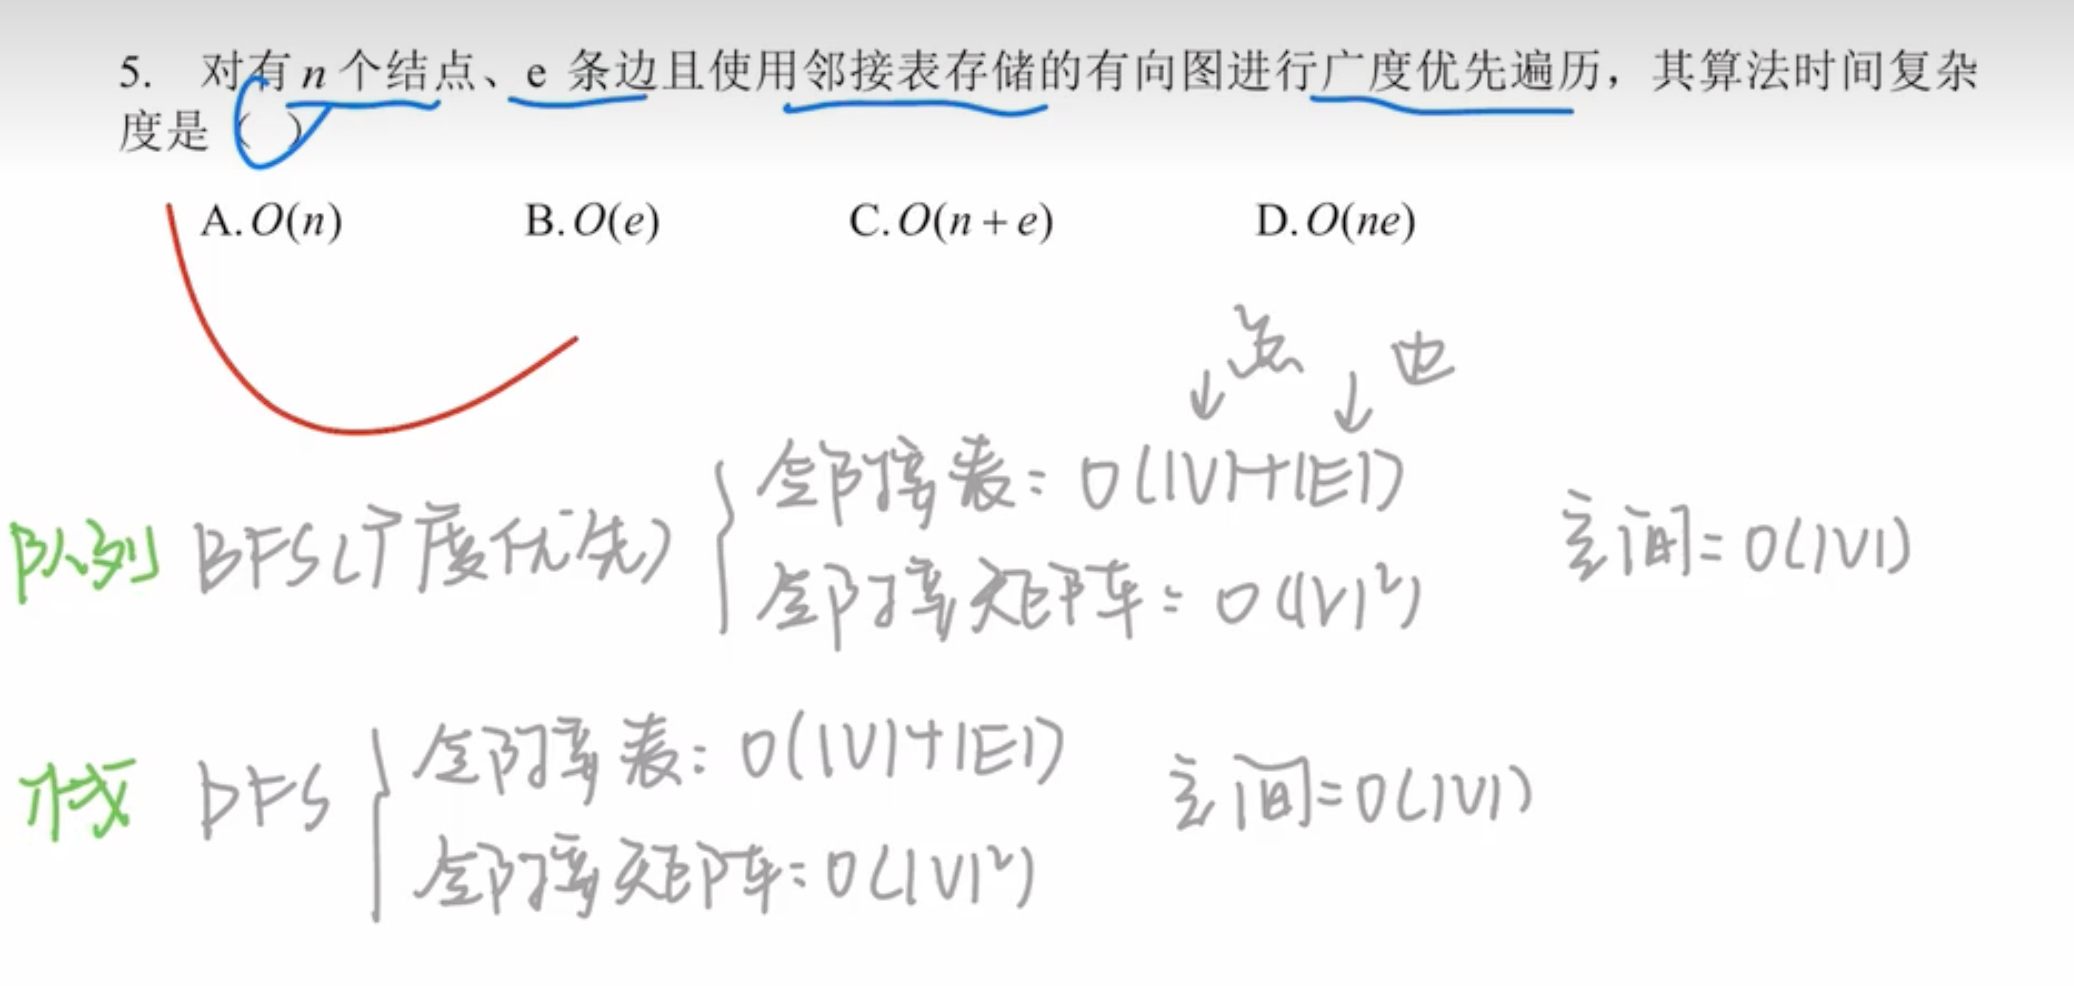 5. 对有 n 个结点、e 条边且使用邻接表存储的有向图进行广度优先遍历，其算法时间复杂
度是（ ）
A. O(n) B. O(e) C. O(n + e) D. O(ne)
点 边
队列 BFS(广度优先) 邻接表: O(|V|+|E|)
邻接矩阵: O(|V|²)
空间: O(|V|)
栈 DFS 邻接表: O(|V|+|E|)
邻接矩阵: O(|V|²)
空间: O(|V|)